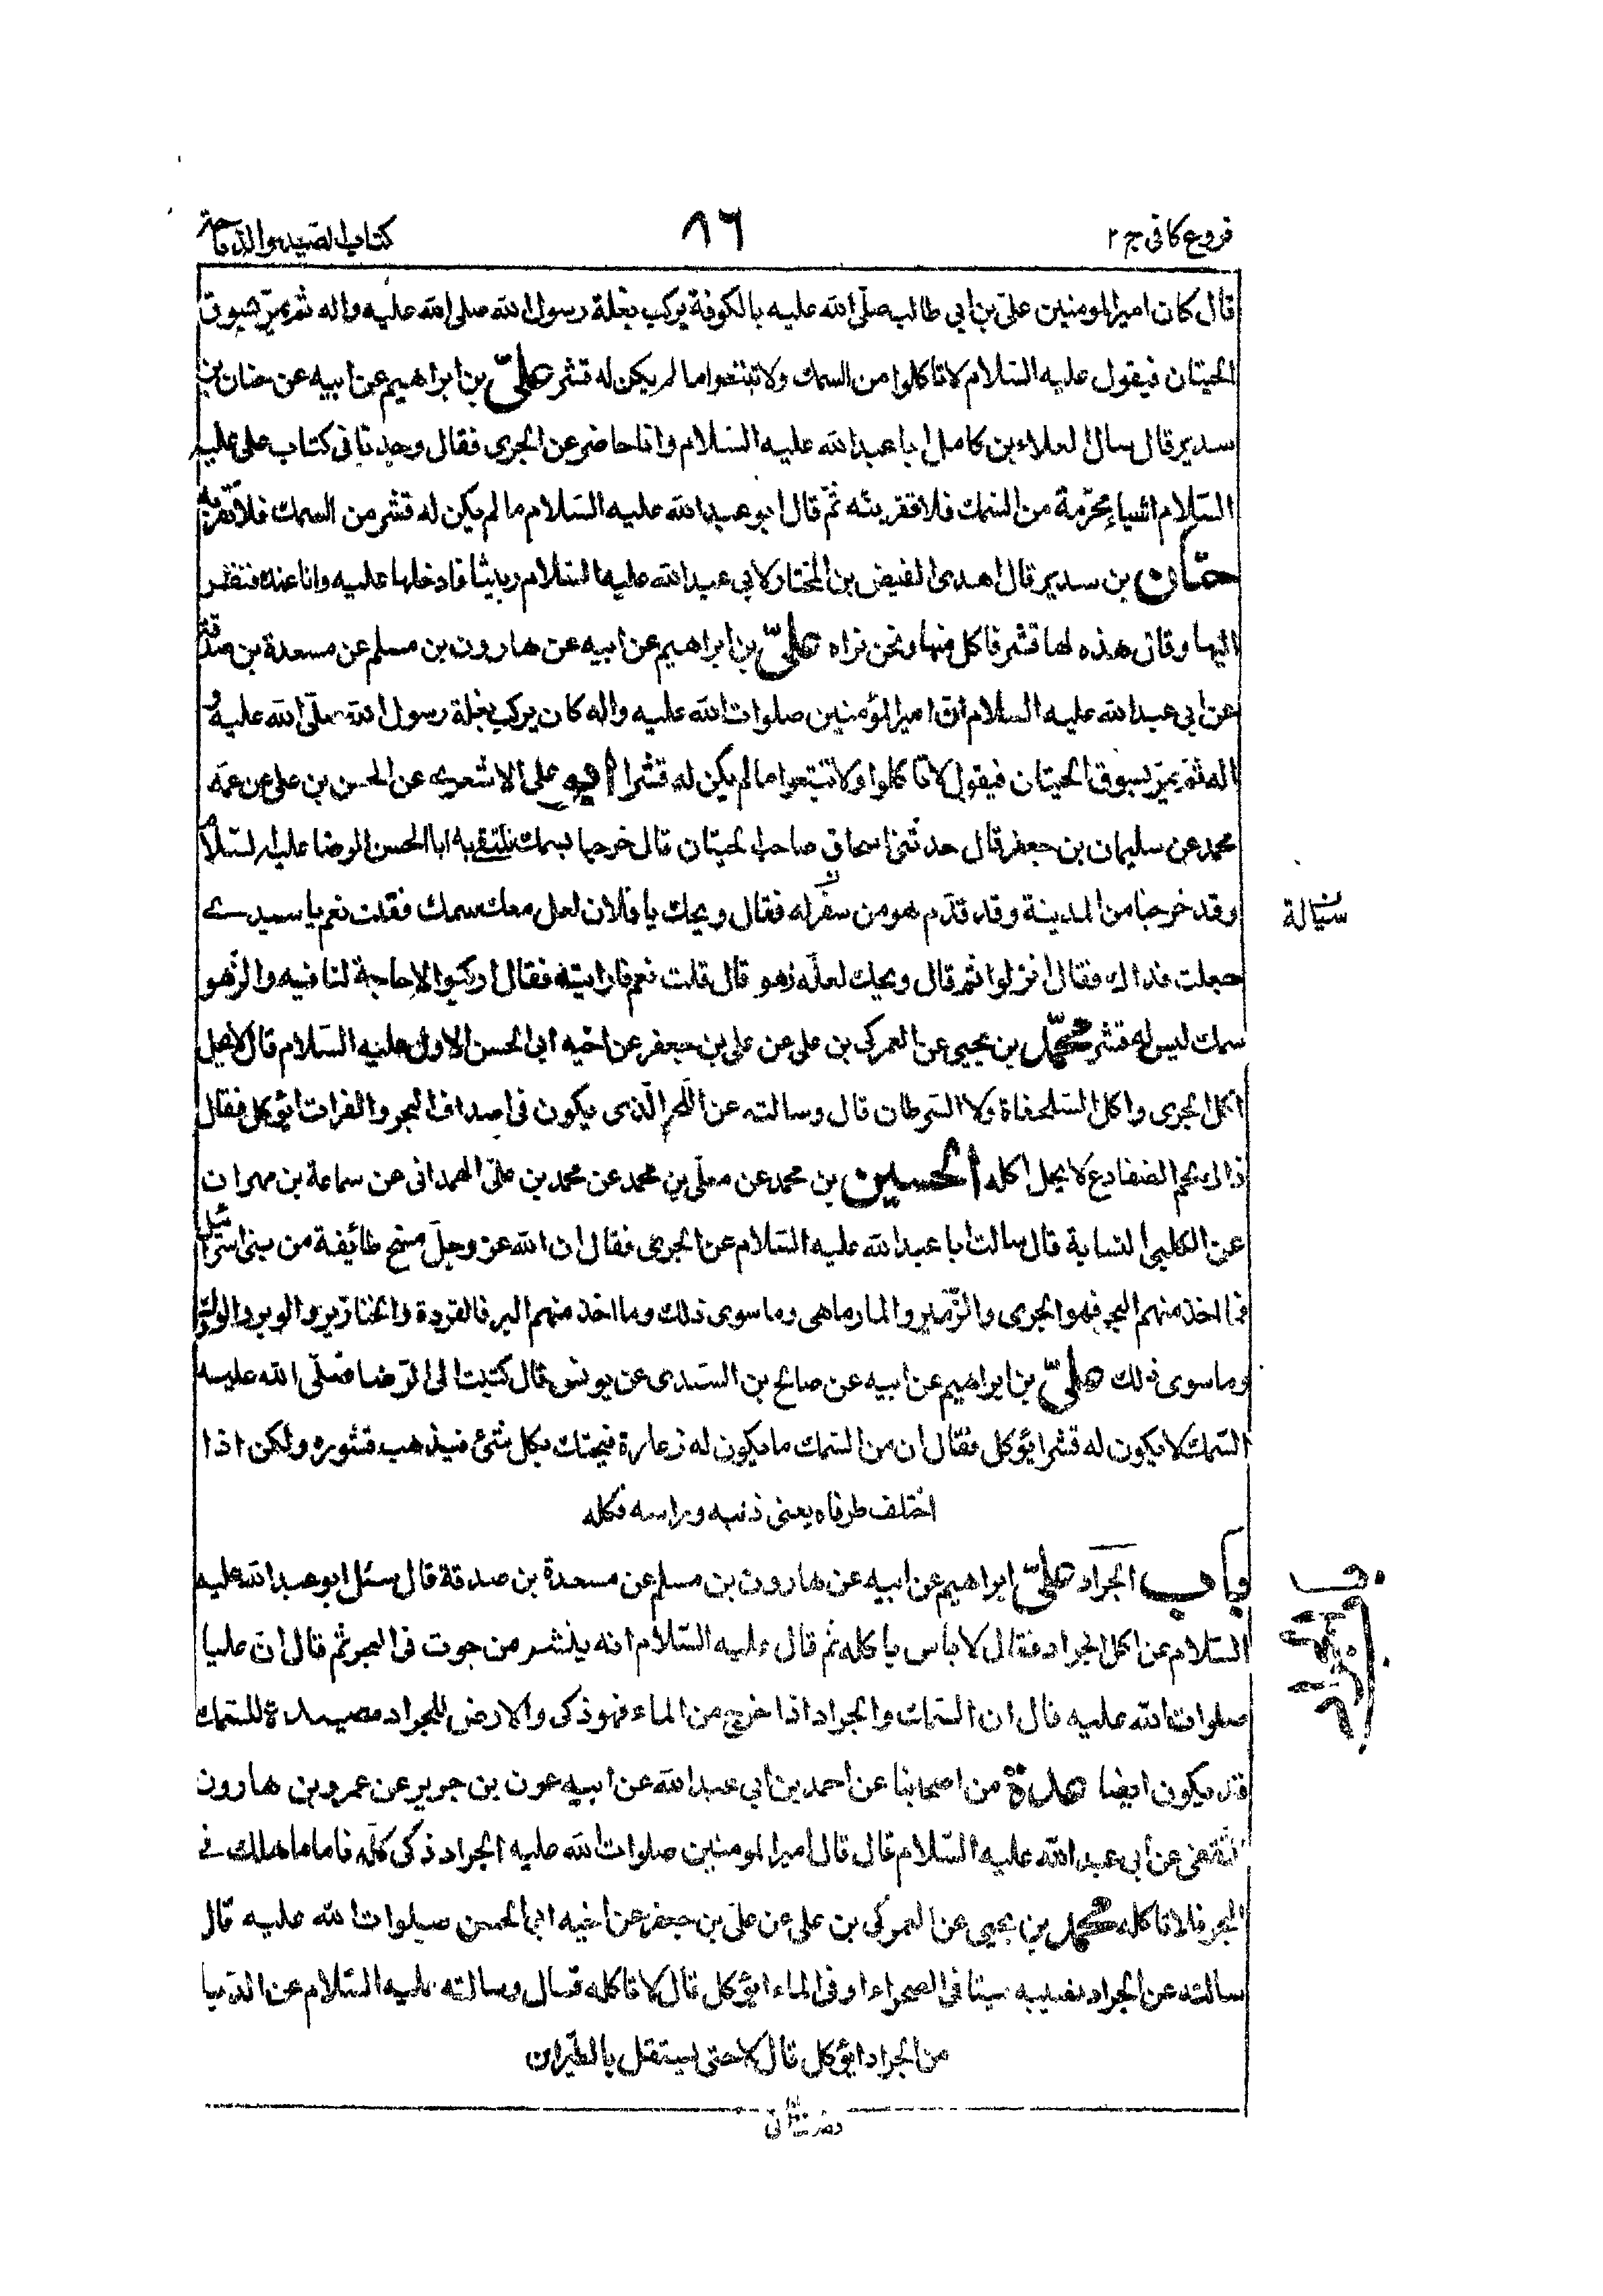 فروع كافى ج ٢
٨٦
كتاب الصيد والذباحة
قال كان امير المومنين على بن ابى طالب صلى الله عليه بالكوفة يركب بغلة رسول الله صلى الله عليه واله ثم يمر بسوق
الحيتان فيقول عليه السلام لا تاكلوا من السمك ولا تبتعوا ما لم يكن له قشر علىّ بن ابراهيم عن ابيه عن حنان بن
سدير قال سال العلاء بن كامل ابا عبد الله عليه السلام وانا حاضر عن الجرى فقال وجدنا فى كتاب على عليه
السلام اشياء محرّمة من السمك فلا تقربنه ثمّ قال ابو عبد الله عليه السلام ما لم يكن له قشر من السمك فلا تقربنه
حنان بن سدير قال اهدى الفيض بن المختار لابى عبد الله عليه السلام ربيثا فادخلها عليه وانا عنده فنظر
اليها وقال هذه لها قشر فاكل منها ونحن نراه علىّ بن ابراهيم عن ابيه عن هارون بن مسلم عن مسعدة بن صدقة
عن ابى عبد الله عليه السلام انّ امير المؤمنين صلوات الله عليه واله كان يركب بغلة رسول الله صلّى الله عليه و
اله ثم يمرّ بسوق الحيتان فيقول لا تاكلوا ولا تبتعوا ما لم يكن له قشرا ابو على الاشعرى عن الحسن بن على عن عمّه
محمد عن سليمان بن جعفر قال حدثنى اسحاق صاحب الحيتان قال خرجنا بسمك نتلقى به ابا الحسن الرضا عليه السلام
وقد خرجنا من المدينة وقد قدّم هو من سفر له فقال ويحك يا فلان لعل معك سمك فقلت نعم يا سيدى
سيّالة
جعلت فداك فقال انزلوا ثم قال ويحك لعلّه زهو قال قلت نعم فاريته فقال اركبوا لا حاجة لنا فيه والزهو
سمك ليس له قشر محمّد بن يحيى عن العمركى بن على عن على بن جعفر عن اخيه ابى الحسن الاول عليه السلام قال لا يحل
اكل الجرى ولا اكل السلحفاة ولا السرطان قال وسالته عن اللحم الّذى يكون فى اصداف البحر والفرات ايؤكل فقال
ذاك لحم الضفادع لا يحل اكله الحسين بن محمد عن معلّى بن محمد عن محمد بن علىّ الهمدانى عن سماعة بن مهران
عن الكلبى النسابة قال سالت ابا عبد الله عليه السلام عن الجرى فقال ان الله عز وجلّ مسخ طائفة من بنى اسرائيل
فما اخذ منهم البحر فهو الجرى والزّمير والمارماهى وما سوى ذلك وما اخذ منهم البر فالقردة والخنازير والوبر والورل
وما سوى ذلك علىّ بن ابراهيم عن ابيه عن صالح بن السندى عن يونس قال كتبت الى الرّضا صلّى الله عليه
السّمك لا يكون له قشر ايؤكل فقال ان من السّمك ما يكون له زعارة فيحتك بكل شئ فيذهب قشوره ولكن اذا
اختلف طرفاه يعنى ذنبه وراسه فكله
باب الجراد علىّ ابراهيم عن ابيه عن هارون بن مسلم عن مسعدة بن صدقة قال سئل ابو عبد الله عليه
السّلام عن اكل الجراد فقال لا باس باكله ثمّ قال عليه السّلام انه ينشر من حوت فى البحر ثمّ قال انّ عليا
صلوات الله عليه قال ان السّمك والجراد اذا خرج من الماء فهو ذكى والارض للجراد مصيدة للسّمك
قد يكون ايضا عدة من اصحابنا عن احمد بن ابى عبد الله عن ابيه عون بن جرير عن عمرو بن هارون
الثقفى عن ابى عبد الله عليه السّلام قال قال امير المومنين صلوات الله عليه الجراد ذكى كلّه فاما ما هلك فى
البحر فلا تاكله محمّد بن يحيى عن العمركى بن على عن علىّ بن جعفر عن اخيه ابى الحسن صلوات الله عليه قال
سالته عن الجراد نصيبه ميتا فى الصحراء او فى الماء ايؤكل قال لا تاكله قال وسالته عليه السّلام عن الدّبا
من الجراد ايؤكل قال لا حتى يستقل بالطّيران